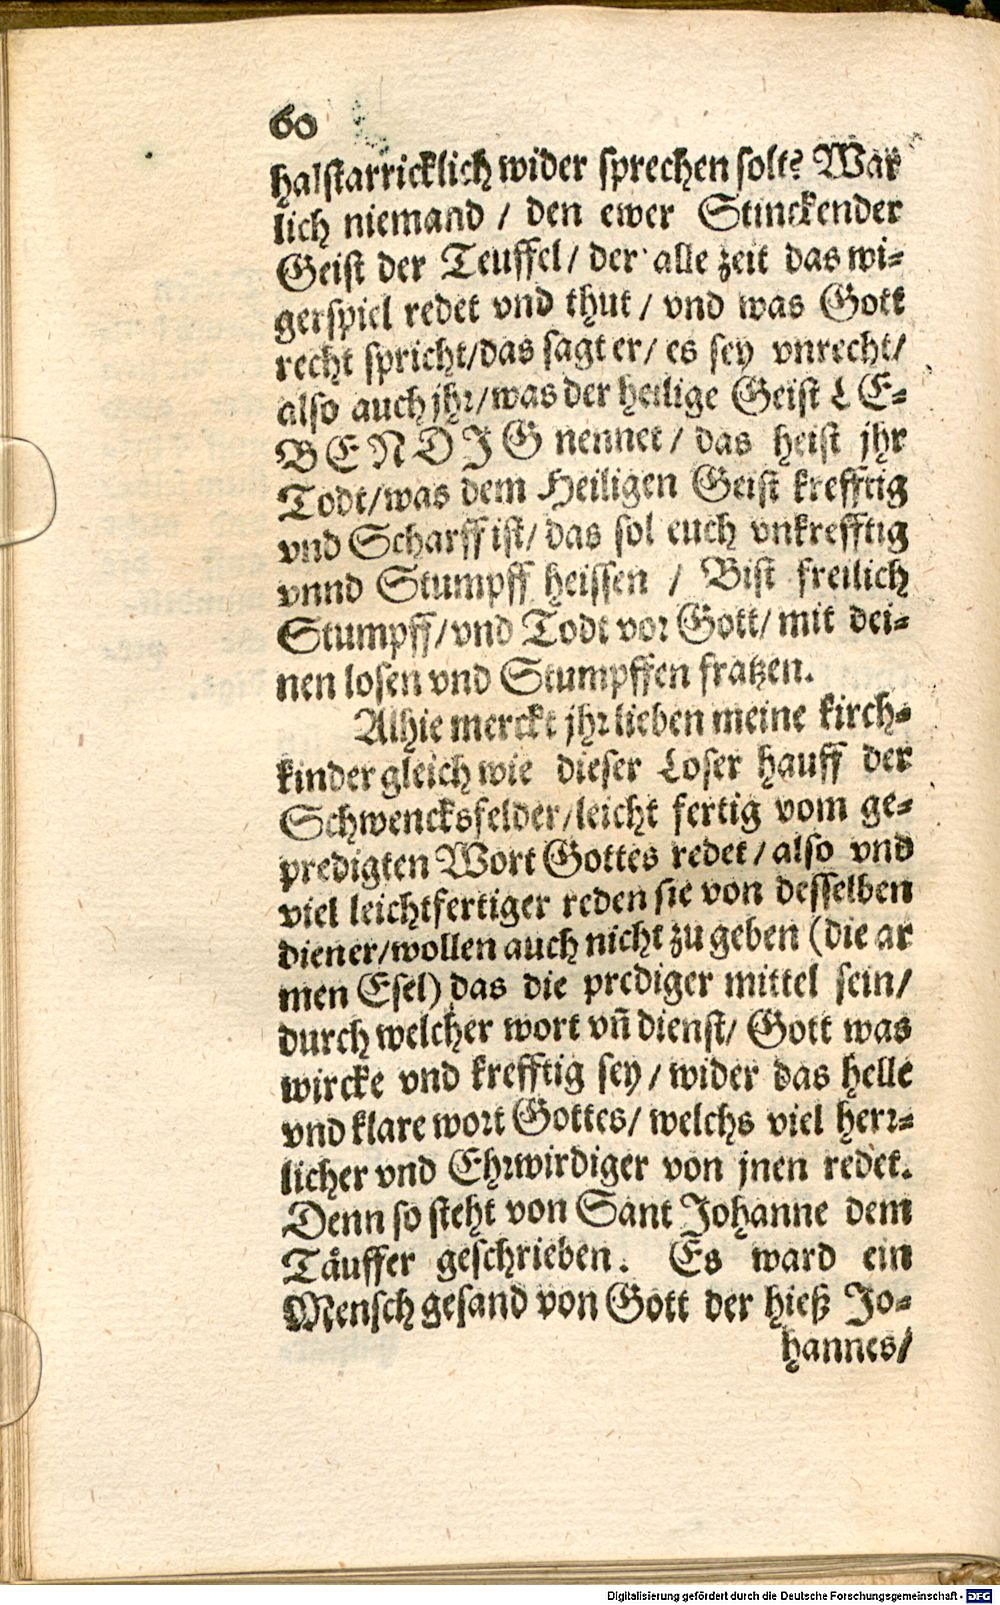 60
halstarricklich wider sprechen solt? War
lich niemand / den ewer Stinckender
Geist der Teuffel / der alle zeit das wi-
gerspiel redet vnd thut / vnd was Gott
recht spricht/das sagt er/ es sey vnrecht/
also auch jhr/was der heilige Geist LE-
BENDIG nennet / das heist jhr
Todt/was dem Heiligen Geist krefftig
vnd Scharff ist/ das sol euch vnkrefftig
vnnd Stumpff heissen / Bist freilich
Stumpff/vnd Todt vor Gott/ mit dei-
nen losen vnd Stumpffen fratzen.
Alhie merckt jhr lieben meine kirch-
kinder gleich wie dieser Loser hauff der
Schwencksfelder/leicht fertig vom ge-
predigten Wort Gottes redet / also vnd
viel leichtfertiger reden sie von desselben
diener/wollen auch nicht zu geben (die ar
men Esel) das die prediger mittel sein/
durch welcher wort vñ dienst/ Gott was
wircke vnd krefftig sey / wider das helle
vnd klare wort Gottes/ welchs viel herr-
licher vnd Ehrwirdiger von jnen redet.
Denn so steht von Sant Johanne dem
Täuffer geschrieben. Es ward ein
Mensch gesand von Gott der hieß Jo-
hannes/
Digitalisierung gefördert durch die Deutsche Forschungsgemeinschaft - DFG